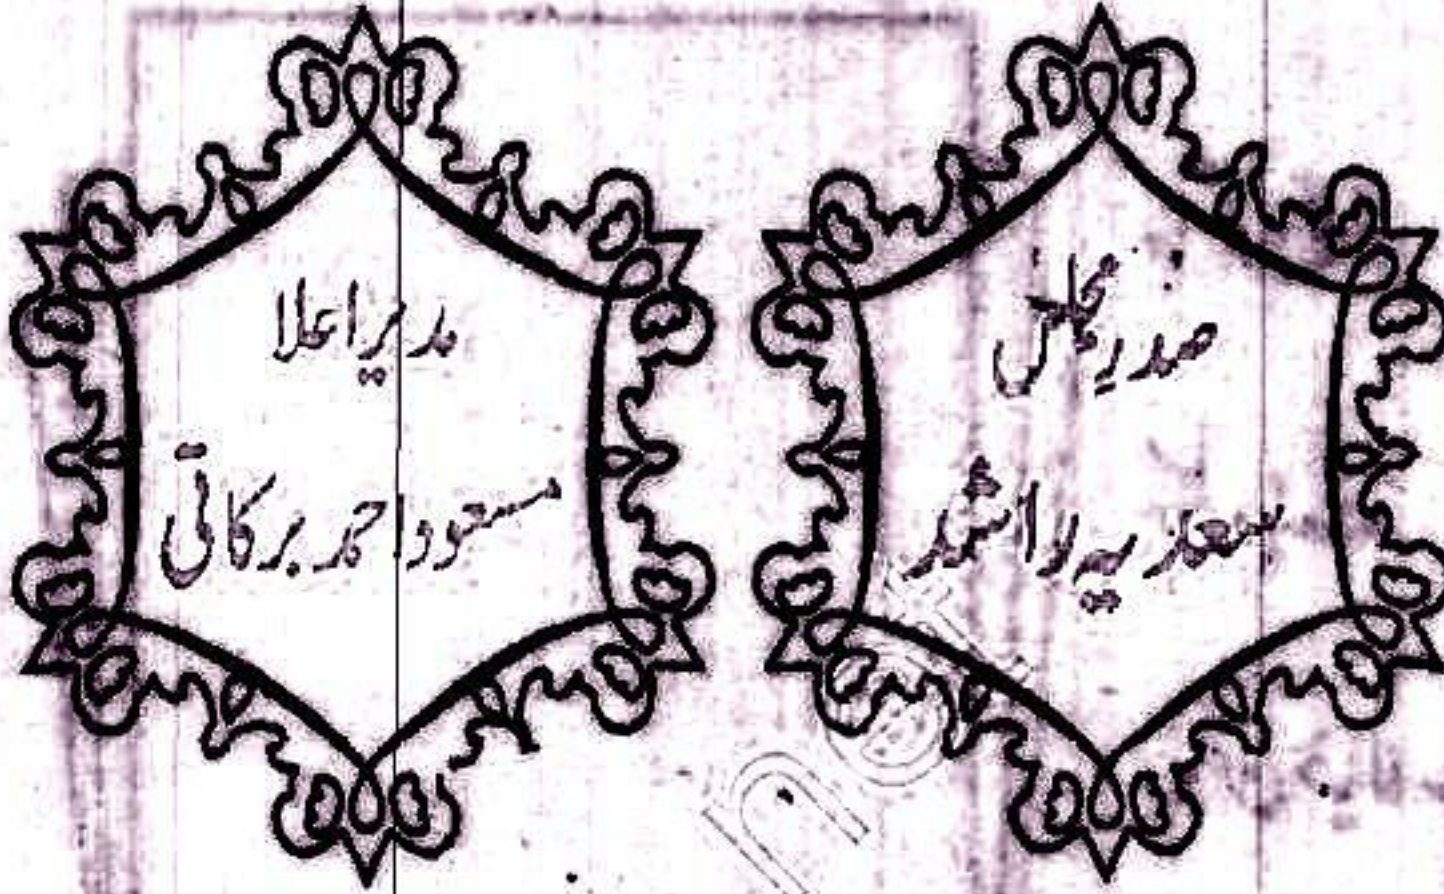 صدر مجلس
سعدیہ راشد
مدیر اعلا
مسعود احمد برکاتی